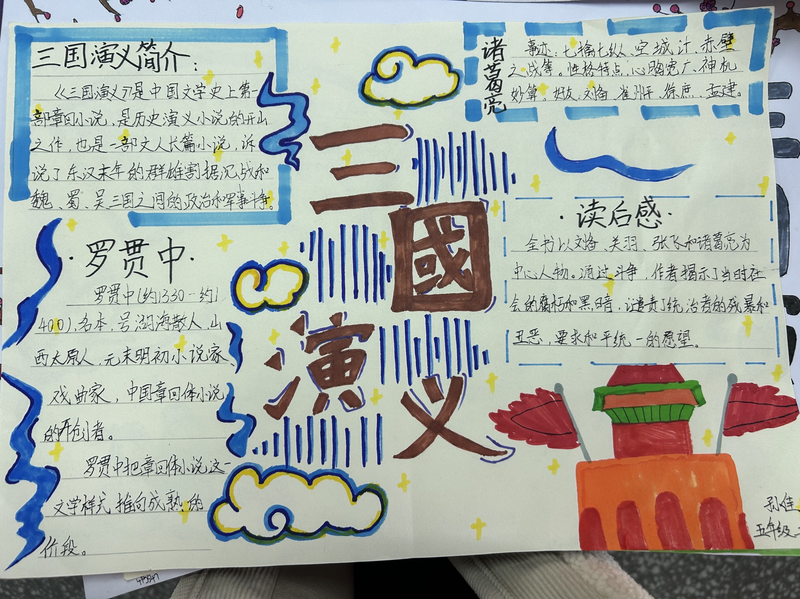 三国演义简介：
《三国演义》是中国文学史上第一
部章回小说，是历史演义小说的开山
之作，也是一部文人长篇小说，诉
说了东汉末年的群雄割据混战和
魏、蜀、吴三国之间的政治和军事斗争。
·罗贯中·
罗贯中（约1330-约1
400），名本，号湖海散人，山
西太原人，元末明初小说家、
戏曲家，中国章回体小说
的开创者。
罗贯中把章回体小说这一
文学样式推向成熟的
阶段。
三
國
演
义
诸葛亮
事迹：七擒七纵、空城计、赤壁
之战等，性格特点，心胸宽广、神机
妙算，好友：刘备、崔州平、徐庶、孟建
·读后感·
全书以刘备、关羽、张飞和诸葛亮为
中心人物。通过斗争，作者揭示了当时社
会的腐朽和黑暗，谴责了统治者的残暴和
丑恶，要求和平统一的愿望。
孙佳
五年级